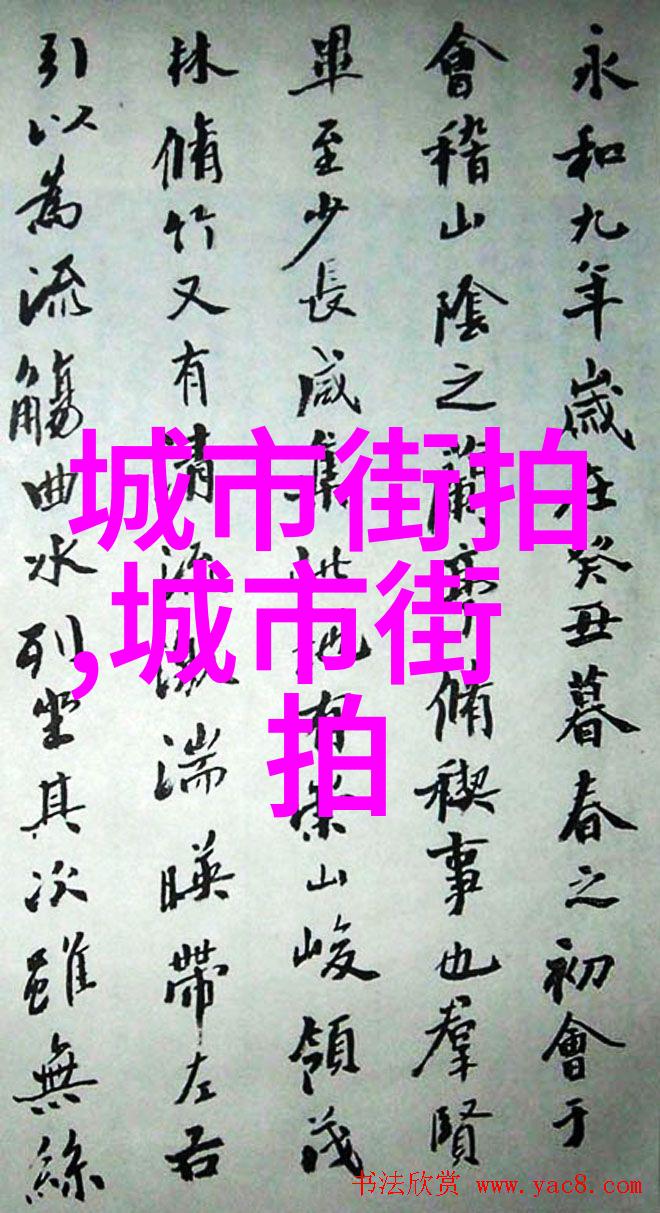 永和九年歲在癸丑暮春之初會于
會稽山陰之蘭亭脩稧事也羣賢
畢至少長咸集此地有崇山峻領茂
林脩竹又有清流激湍暎帶左右
引以為流觴曲水列坐其次雖無絲
城市街拍
,城市街
拍
书法欣赏 www.yac8.com